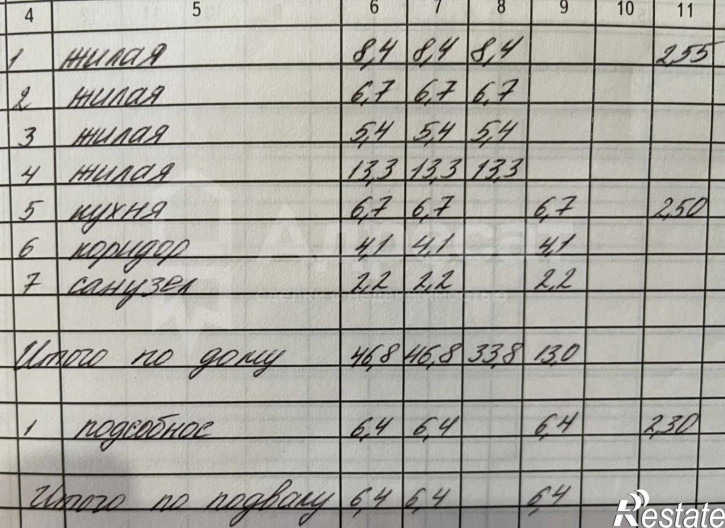 4 5 6 7 8 9 10 11
1 жилая 8,4 8,4 8,4 2,55
2 жилая 6,7 6,7 6,7
3 жилая 5,4 5,4 5,4
4 жилая 13,3 13,3 13,3
5 кухня 6,7 6,7 6,7 2,50
6 коридор 4,1 4,1 4,1
7 санузел 2,2 2,2 2,2
Итого по дому 46,8 46,8 33,8 13,0
1 подсобное 6,4 6,4 6,4 2,30
Итого по подвалу 6,4 6,4 6,4
Restate